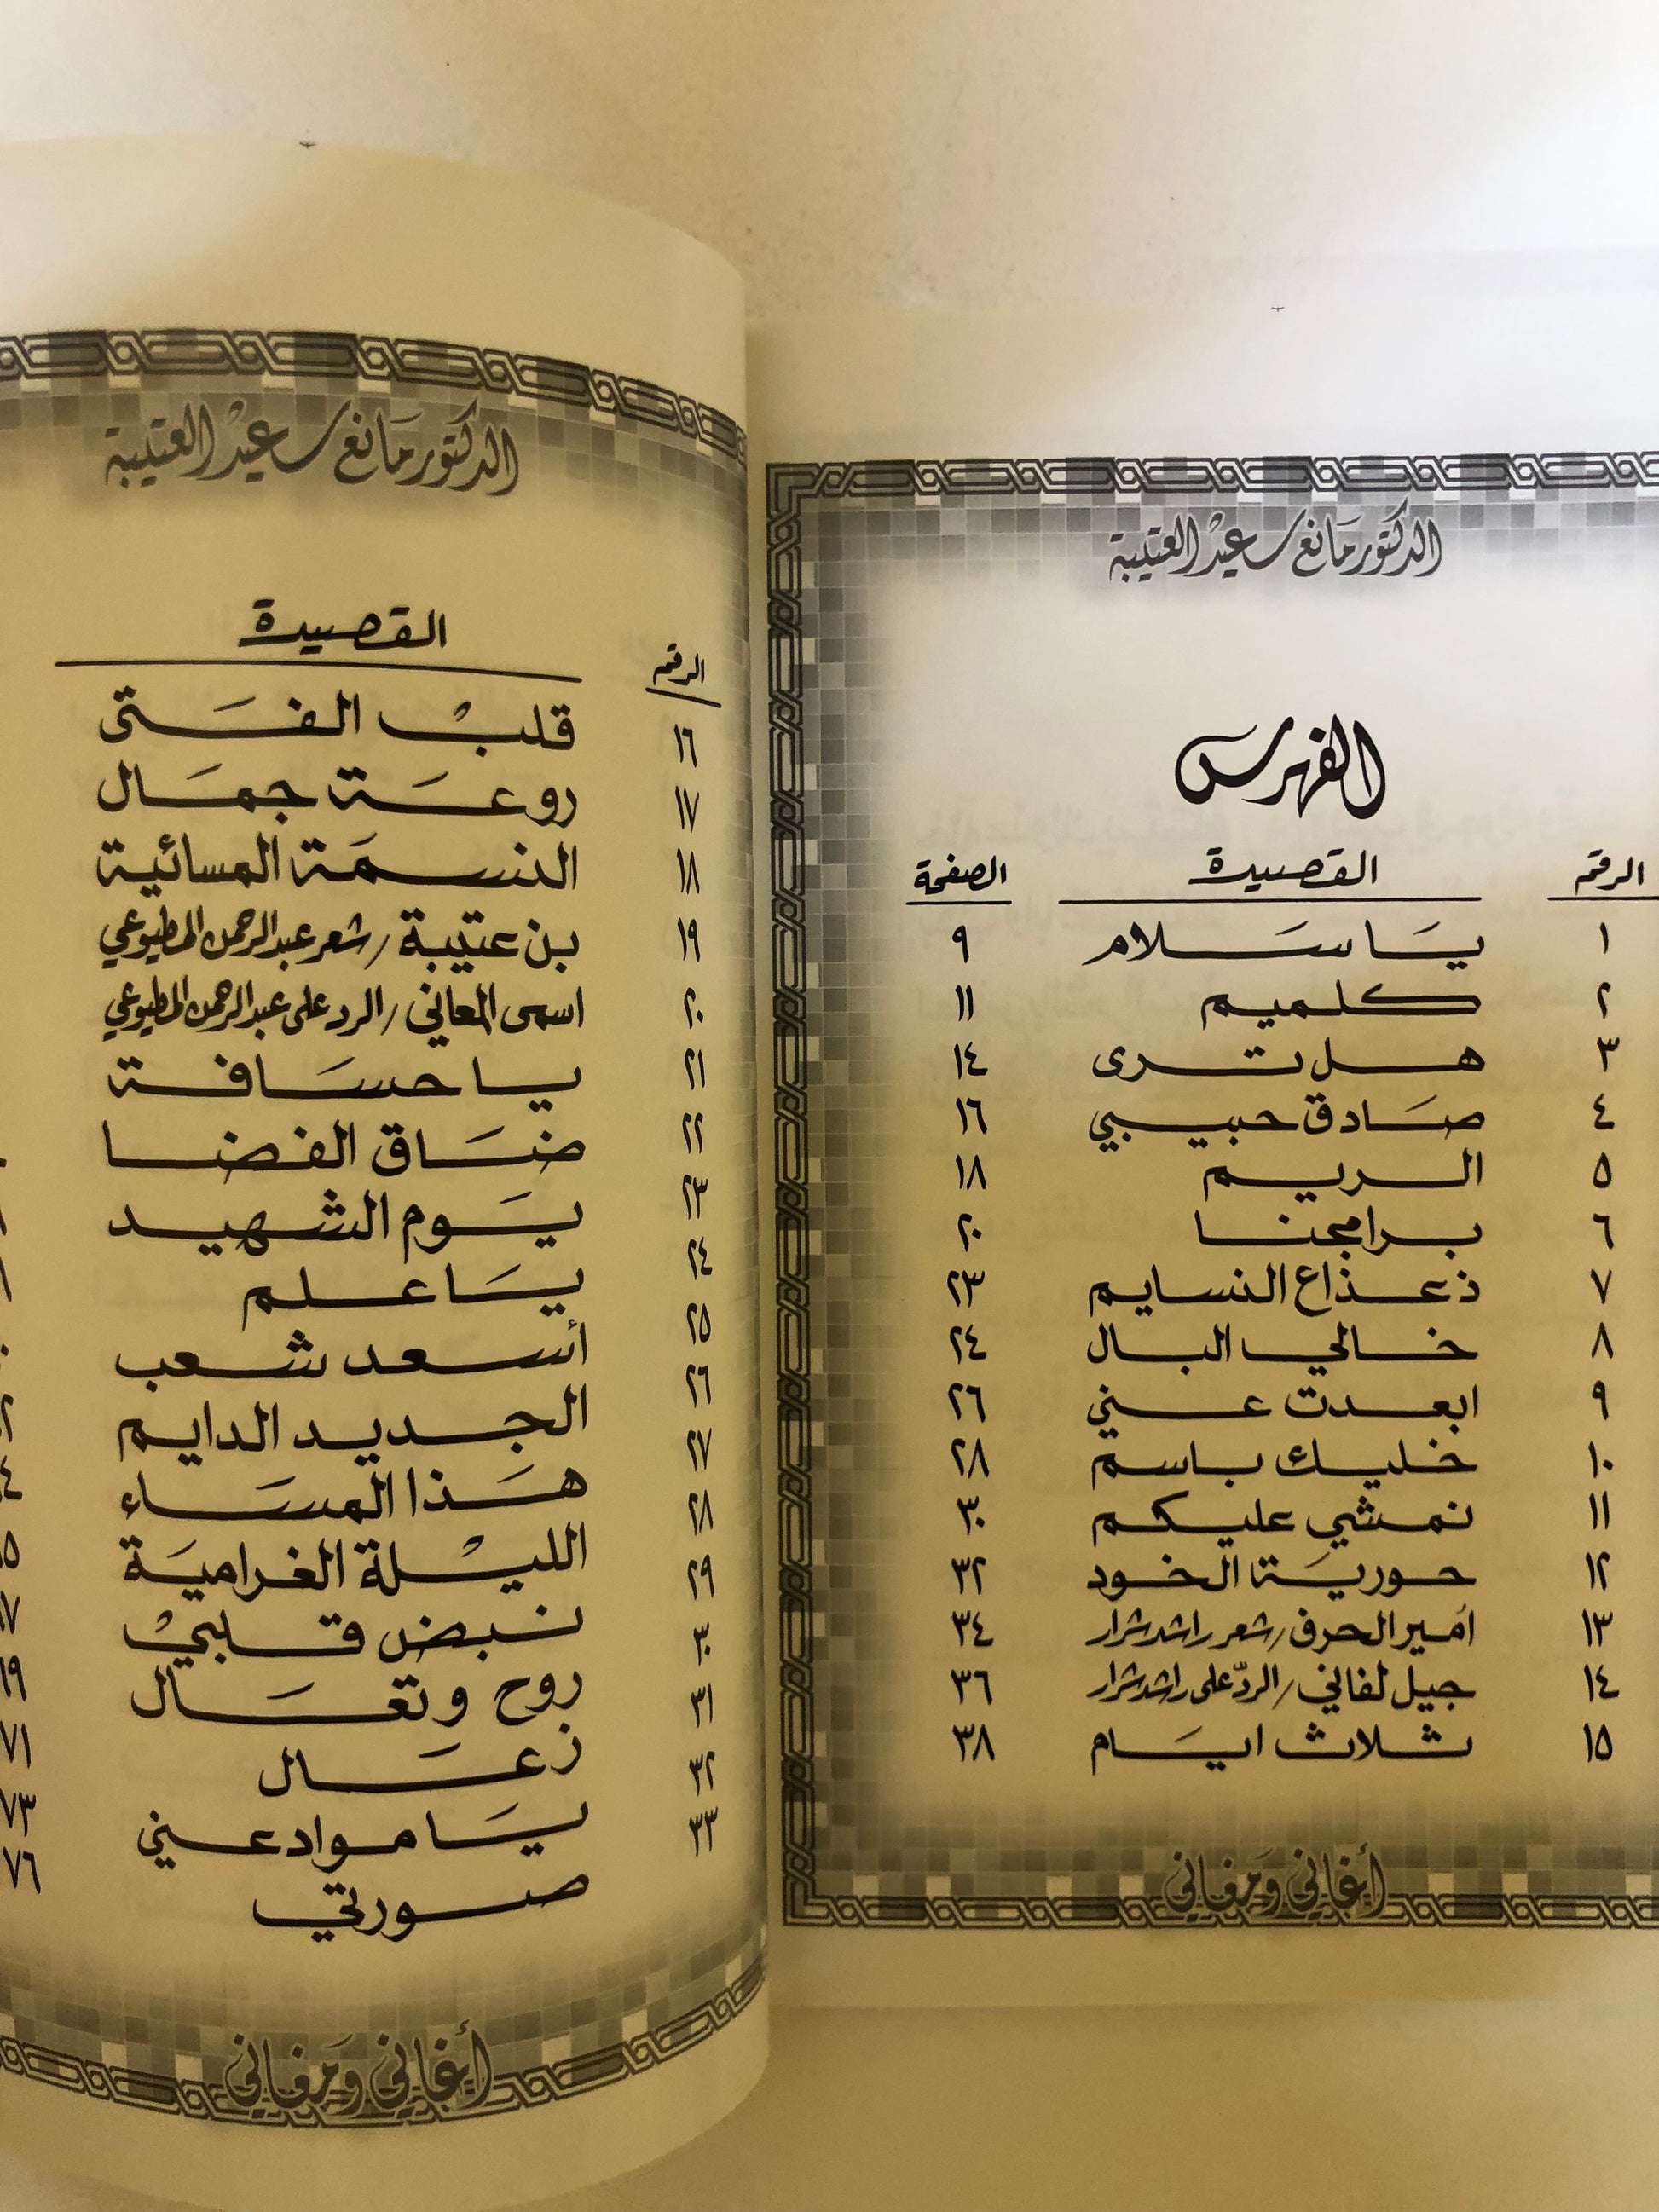 الدكتور مانع سعيد العتيبة
الفهرس
الرقم القصيدة الصفحة
١ يَا سَلام ٩
٢ كلميم ١١
٣ هل ترى ١٤
٤ صَادق حبيبي ١٦
٥ الريم ١٨
٦ برامجنا ٢٠
٧ ذعذاع النسايم ٢٣
٨ خالي البال ٢٤
٩ ابعدت عني ٢٦
١٠ خليك باسم ٢٨
١١ نمشي عليكم ٣٠
١٢ حوريَة الخود ٣٢
١٣ أمير الحرف / شعر راشد شرار ٣٤
١٤ جيل لفاني / الردّ على راشد شرار ٣٦
١٥ ثلاث ايَام ٣٨
أغاني وَمغاني
الدكتور مانع سعيد العتيبة
الرقم القصيدة
١٦ قلبْ الفَتى
١٧ روعَة جمَال
١٨ النسمَة المسائية
١٩ بن عتيبة / شعر عبدالرحمن المطيوعي
٢٠ اسمى المعاني / الرد على عبدالرحمن المطيوعي
٢١ يا حسَافة
٢٢ ضَاق الفضا
٢٣ يَوم الشهيد
٢٤ يَا علم
٢٥ أسعد شعب
٢٦ الجديد الدايم
٢٧ هَذا المسَاء
٢٨ الليْلة الغراميَة
٢٩ نبض قلبيْ
٣٠ روح وتعَال
٣١ زعَال ٧١
٣٢ يَا موادعني ٧٣
٣٣ صورتي ٧٦
أغاني وَمغاني